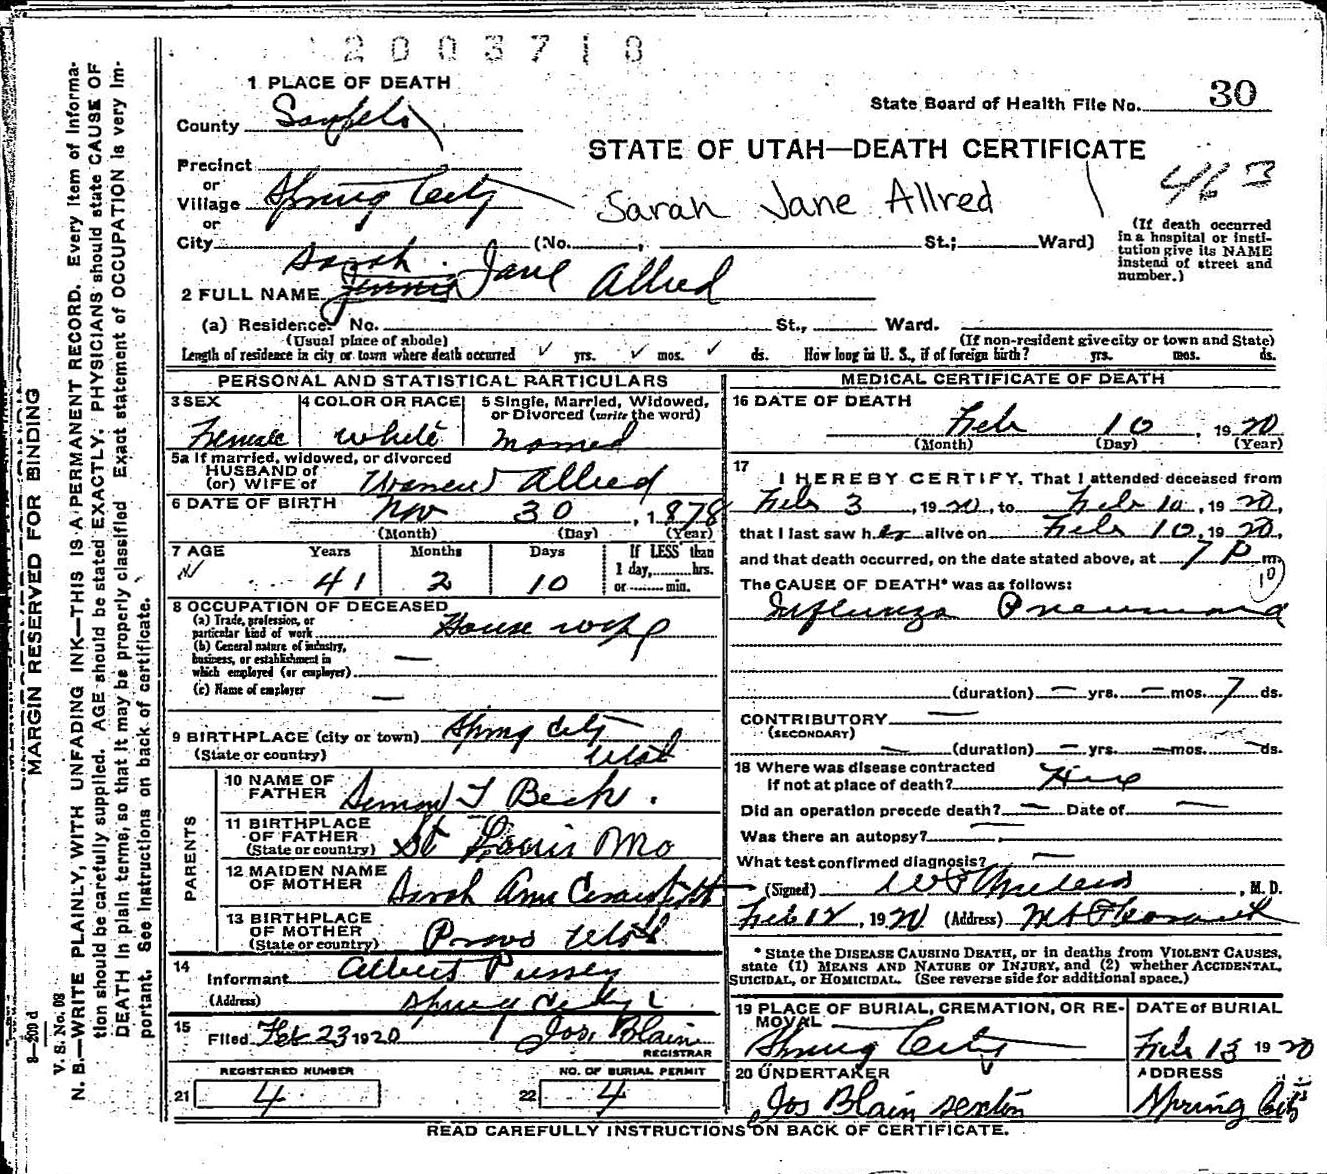 2003718
1 PLACE OF DEATH
State Board of Health File No. 30
County Sanpete
STATE OF UTAH—DEATH CERTIFICATE
Precinct
or
Village Spring City
463
Sarah Jane Allred
or
City (No. , St.; Ward)
(If death occurred
in a hospital or insti-
tution give its NAME
instead of street and
number.)
Sarah
2 FULL NAME Jennie Jane Allred
(a) Residence. No. St., Ward.
(Usual place of abode) (If non-resident give city or town and State)
Length of residence in city or town where death occurred ✓ yrs. ✓ mos. ✓ ds. How long in U. S., if of foreign birth? yrs. mos. ds.
PERSONAL AND STATISTICAL PARTICULARS
3 SEX 4 COLOR OR RACE 5 Single, Married, Widowed,
or Divorced (write the word)
Female White Married
5a If married, widowed, or divorced
HUSBAND of
(or) WIFE of Allred
6 DATE OF BIRTH Nov 30, 1878
(Month) (Day) (Year)
7 AGE Years Months Days If LESS than
1 day, hrs.
or min.
41 2 10
8 OCCUPATION OF DECEASED
(a) Trade, profession, or
particular kind of work House wife
(b) General nature of industry,
business, or establishment in
which employed (or employer) —
(c) Name of employer —
9 BIRTHPLACE (city or town) Spring City
(State or country) Utah
PARENTS
10 NAME OF
FATHER Simon T Beck.
11 BIRTHPLACE
OF FATHER
(State or country) St Louis Mo
12 MAIDEN NAME
OF MOTHER Sarah Ann
13 BIRTHPLACE
OF MOTHER
(State or country) Provo Utah
14
Informant Albert Pussey
(Address) Spring City
15
Filed Feb 23 1920 Jos. Blain
REGISTRAR
REGISTERED NUMBER NO. OF BURIAL PERMIT
21 4 22 4
MEDICAL CERTIFICATE OF DEATH
16 DATE OF DEATH
Feb 10, 1920
(Month) (Day) (Year)
17
I HEREBY CERTIFY, That I attended deceased from
Feb 3, 1920, to Feb 10, 1920,
that I last saw her alive on Feb 10, 1920,
and that death occurred, on the date stated above, at 7 P m.
The CAUSE OF DEATH* was as follows: 10
Influenza Pneumonia
(duration) — yrs. — mos. 7 ds.
CONTRIBUTORY —
(SECONDARY)
— (duration) — yrs. — mos. — ds.
18 Where was disease contracted
if not at place of death? Here
Did an operation precede death? — Date of —
Was there an autopsy? —
What test confirmed diagnosis? —
(Signed) , M. D.
Feb 12, 1920 (Address) Mt Pleasant
* State the DISEASE CAUSING DEATH, or in deaths from VIOLENT CAUSES,
state (1) MEANS AND NATURE OF INJURY, and (2) whether ACCIDENTAL,
SUICIDAL, or HOMICIDAL. (See reverse side for additional space.)
19 PLACE OF BURIAL, CREMATION, OR RE-
MOVAL DATE of BURIAL
Spring City Feb 13 1920
20 UNDERTAKER ADDRESS
Jos Blain sexton Spring City
READ CAREFULLY INSTRUCTIONS ON BACK OF CERTIFICATE.
MARGIN RESERVED FOR BINDING
V. S. No. 08
N. B.—WRITE PLAINLY, WITH UNFADING INK—THIS IS A PERMANENT RECORD. Every item of informa-
tion should be carefully supplied. AGE should be stated EXACTLY. PHYSICIANS should state CAUSE OF
DEATH in plain terms, so that it may be properly classified. Exact statement of OCCUPATION is very im-
portant. See instructions on back of certificate.